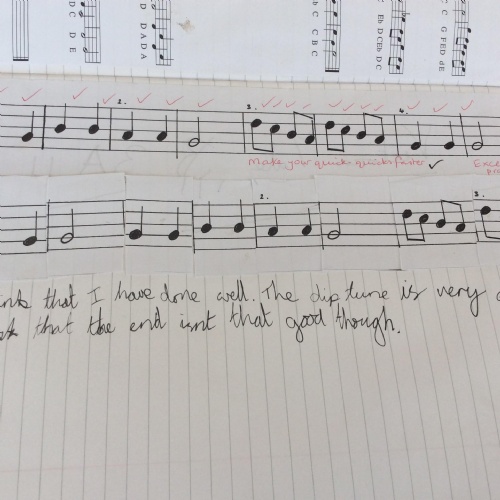 D C
D E
D
D A D A
C
C B C
C
Eb D CEb D C
C
G FED dE
2.
3.
4.
Make your quick quicks faster ✓
Exce
pr
2.
3.
inks that I have done well. The dip tune is very
that the end isnt that good though.